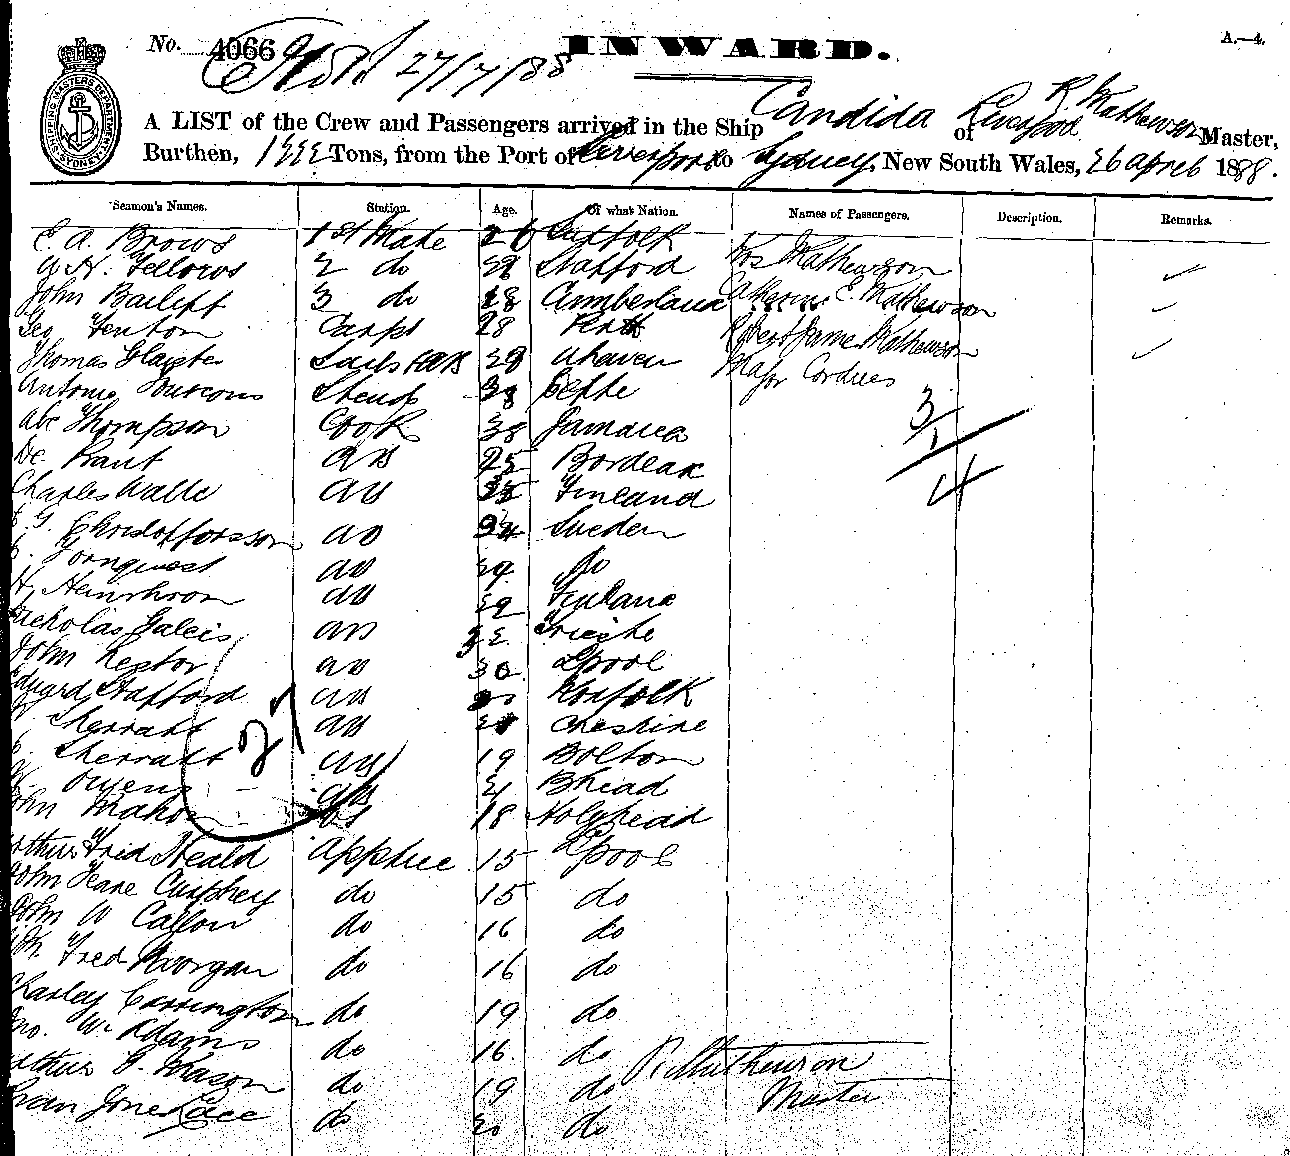 No. 4066 INWARD. A.—4.
27/7/88
SHIPPING MASTERS DEPARTMENT SYDNEY
A LIST of the Crew and Passengers arrived in the Ship Candida of Liverpool R. Mathewson Master,
Burthen, 1222 Tons, from the Port of Liverpool to Sydney, New South Wales, 26 April 1888.
Seamen's Names. Station. Age. Of what Nation. Names of Passengers. Description. Remarks.
E. A. Brows 1st Mate 26 Suffolk
W. H. Fellows 2 do 29 Stafford Mathewson
John Bailiff 3 do 28 Cumberland E. Mathewson
Geo Fenton Carpt 28 Perth Robert James Mathewson
Thomas 39 Major Cordues
Antonio Stewd 38
Abe Thompson Cook 38 Jamaica
De Raut AB 25 Bordeax
Charles Walle AB Finland
AB 34 Sweden
AB 29 do
H. AB 29 Finland
Nicholas Galcis AB 32 Trieste
John Lestor AB 30 Lpool
Edward Stafford AB 20 Norfolk
Sherratt AB Cheshire
Sherratt AB 19 Bolton
Owens AB 21 Bhead
John Mahon OS 18 Holyhead
Arthur Fred Heald Apptice 15 Lpool
John do 15 do
John W Callon do 16 do
Wm. Fred Morgan do 16 do
Charley Carrington do 19 do
Jno. W. Adams do 16 do
Arthur G. Mason do 19 do
do 20 do
3
1
4
27
R Mathewson
Master